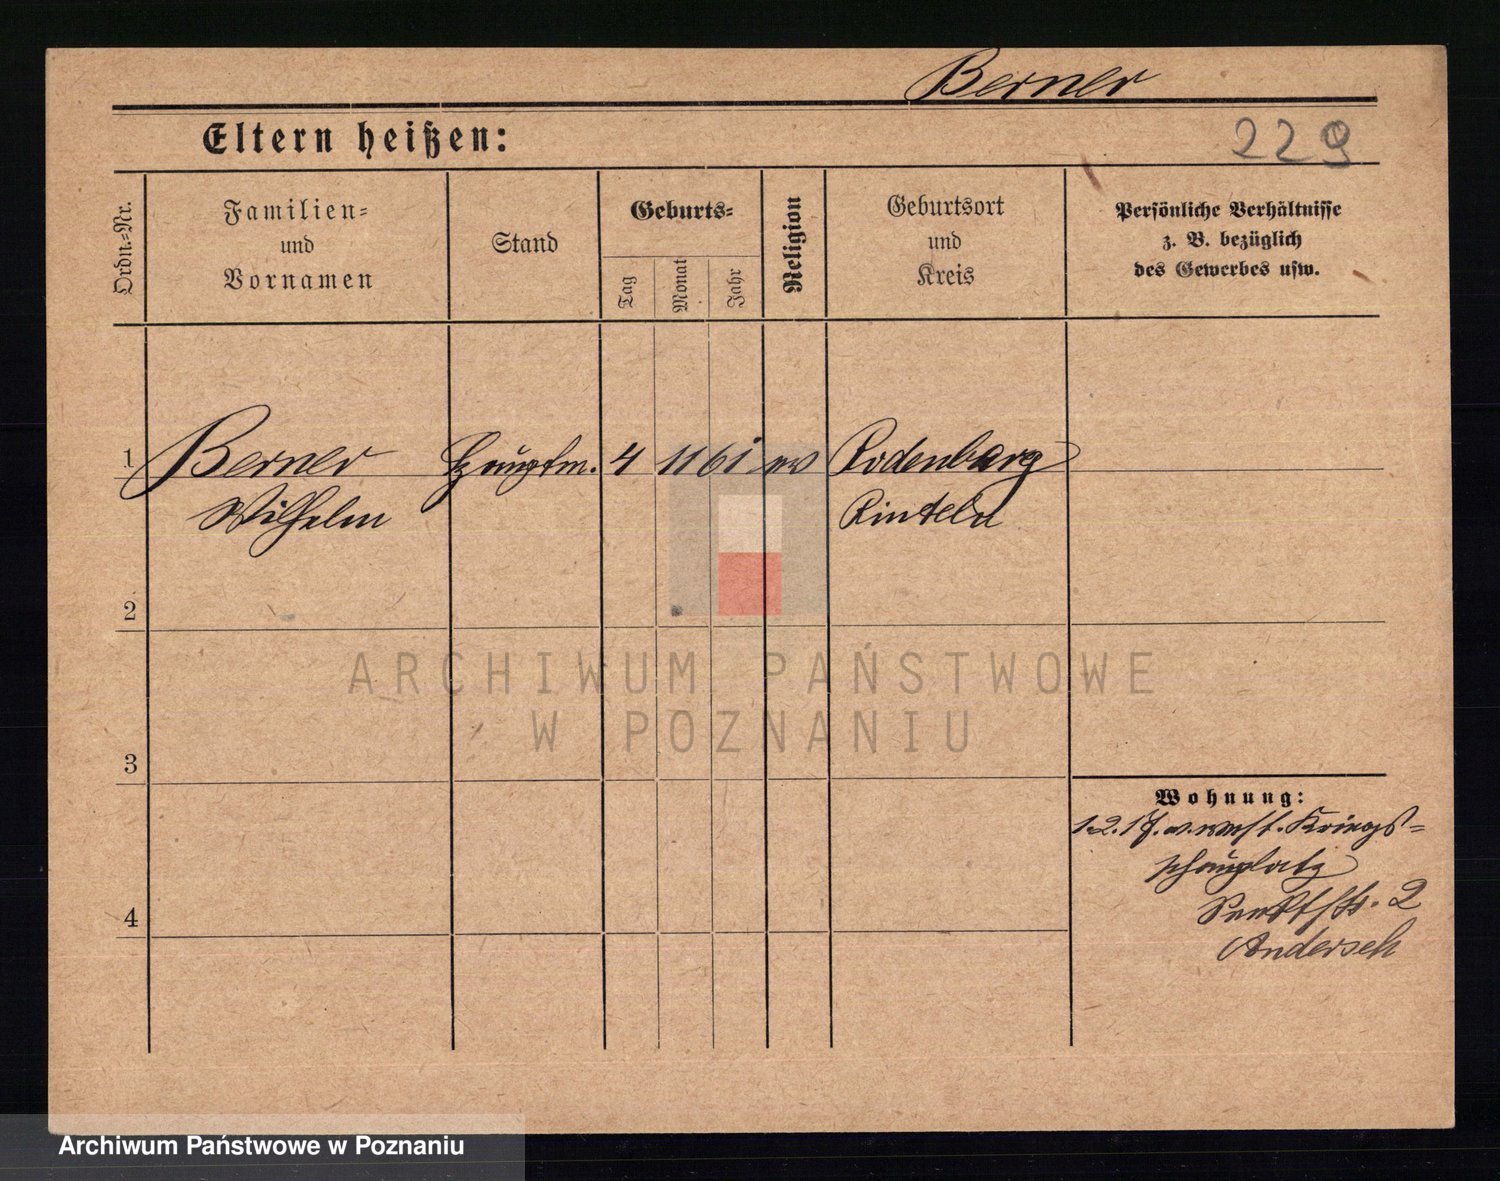 Berner
Eltern heißen:
229
Ordn.-Nr.
Familien-
und
Vornamen
Stand
Geburts-
Tag
Monat
Jahr
Religion
Geburtsort
und
Kreis
Persönliche Verhältnisse
z. B. bezüglich
des Gewerbes usw.
1 Berner Hauptm. 4 11 61 ev Rodenberg
Wilhelm Rinteln
2
ARCHIWUM PAŃSTWOWE
W POZNANIU
3
Wohnung:
1.2.17. v. westl. Kriegs-
schauplatz
2
Andersch
4
Archiwum Państwowe w Poznaniu